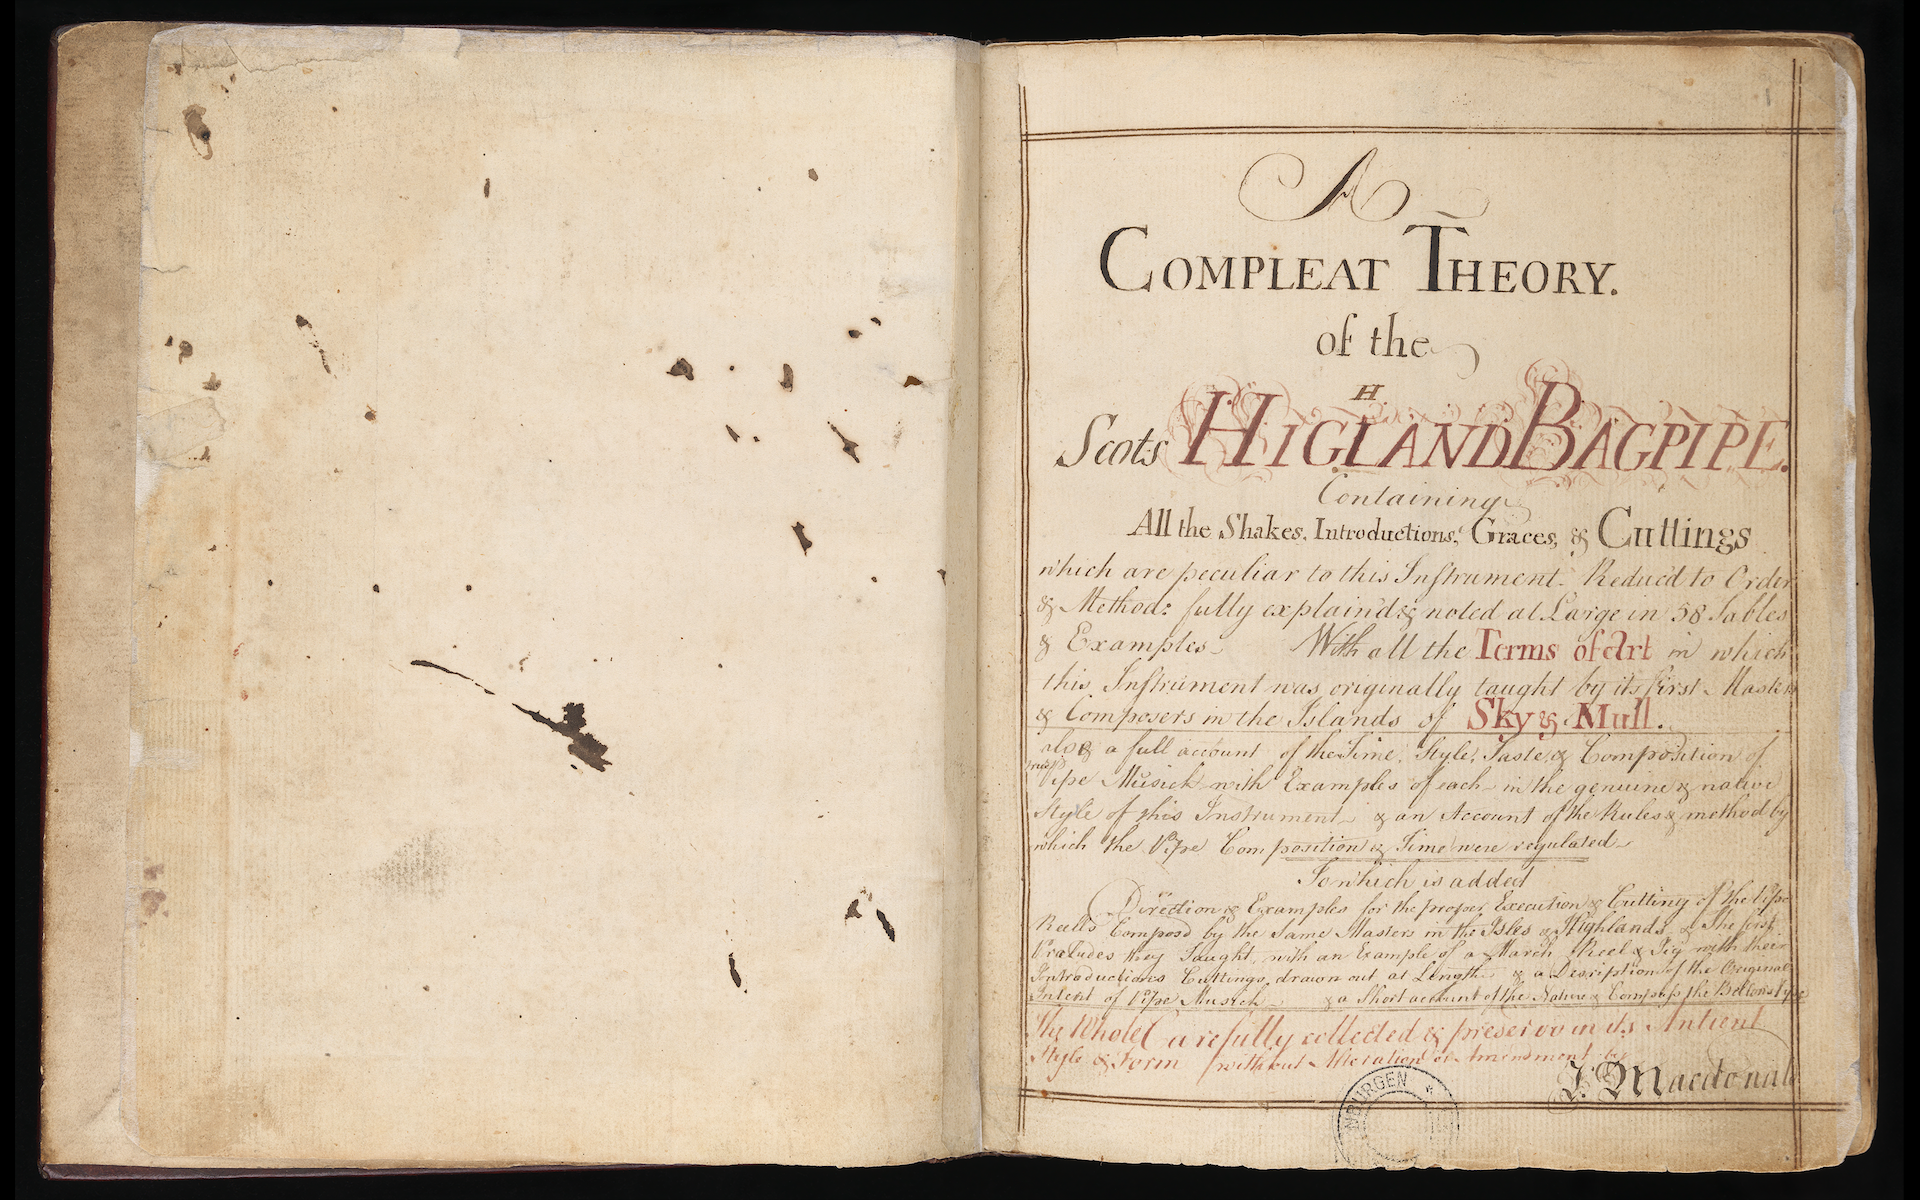 A
COMPLEAT THEORY.
of the
H.
Scots HIGLAND BAGPIPE.
Containing
All the Shakes, Introductions, Graces, & Cuttings
which are peculiar to this Instrument. Reduc'd to Order
& Method: fully explain'd & noted at Large in 58 Tables
& Examples With all the Terms of Art in which
this Instrument was originally taught by its first Masters
& Composers in the Islands of Sky & Mull.
also a full account of the Time, Style, Taste, & Composition of
Pipe Musick with Examples of each in the genuine & native
Style of this Instrument & an Account of the Rules & method by
which the Pipe Composition & Time were regulated
To which is added
Direction & Examples for the proper Execution & Cutting of the Pipe
Reells Compos'd by the Same Masters in the Isles & Highlands & The first
Præludes they Taught, with an Example of a March Reel & Jig with their
Introductions Cuttings, drawn out at Length & a Description of the Original
Intent of Pipe Musick & a Short account of the Nature & Compass the
The Whole Carefully collected & preserv'd in its Antient
Style & Form without Alteration or Amendment by
J. Macdonald
NBURGEN *